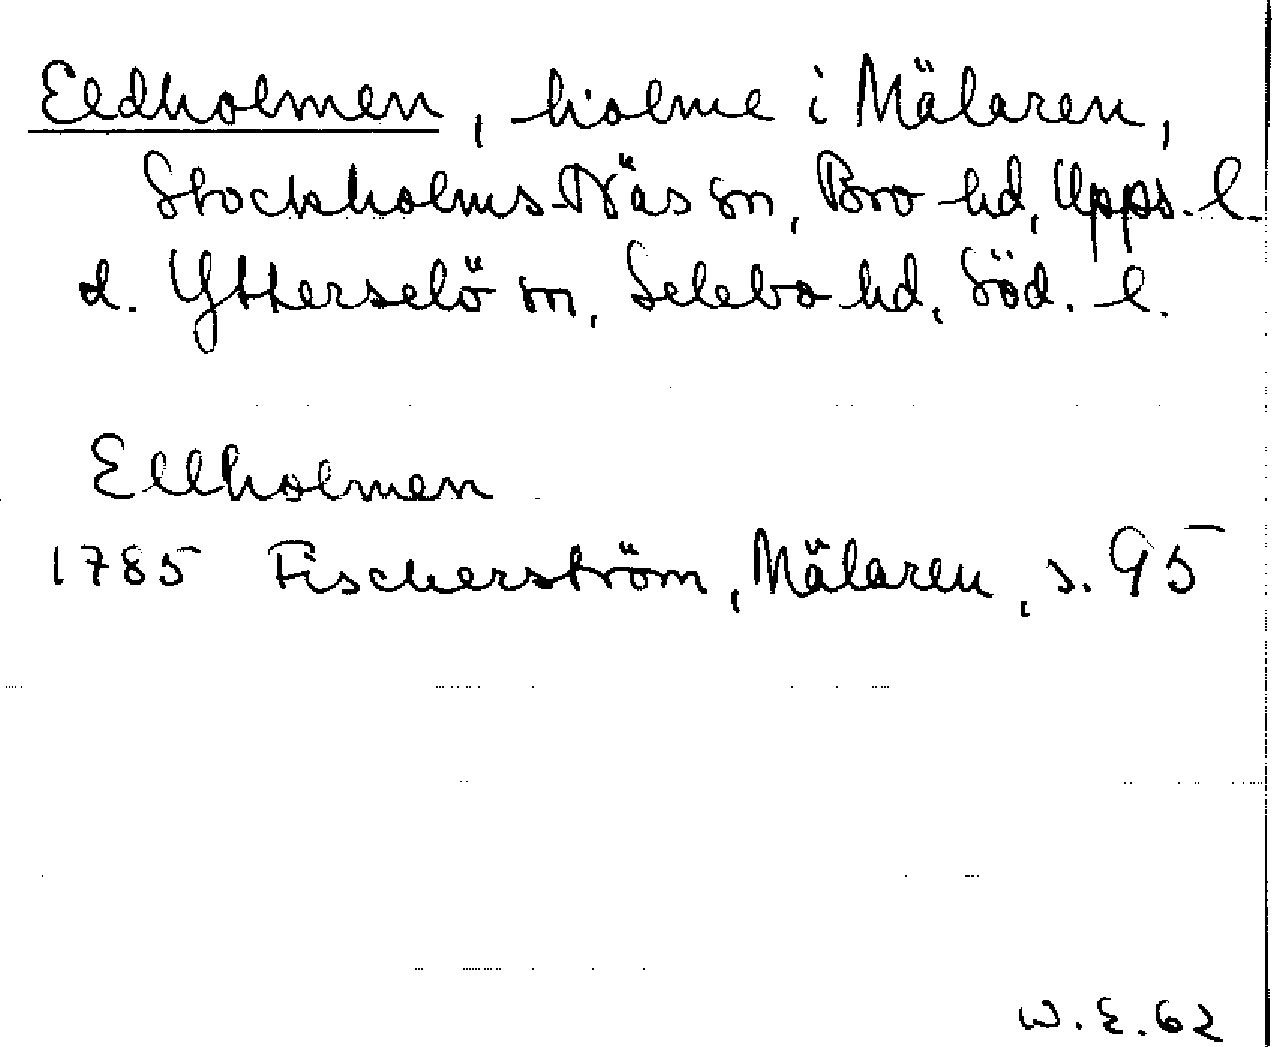 Eldholmen, holme i Mälaren,
Stockholms-Näs sn, Bro hd, Upps. l.
d. Ytterselö sn, Selebo hd, Söd. l.
Ellholmen
1785 Fischerström, Mälaren, s. 95
W. E. 62